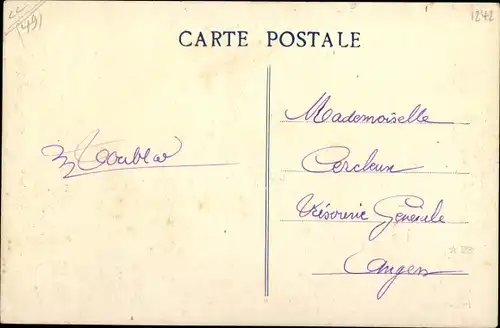 (49)
1242
CARTE POSTALE
Mademoiselle
Cercleux
Trésorerie Générale
Angers